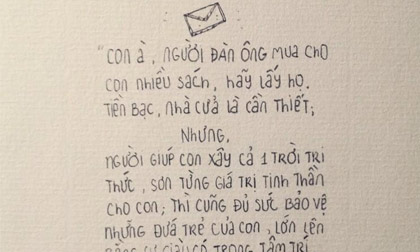 "CON À, NGƯỜI ĐÀN ÔNG MUA CHO
CON NHIỀU SÁCH, HÃY LẤY HỌ.
TIỀN BẠC, NHÀ CỬA LÀ CẦN THIẾT;
NHƯNG,
NGƯỜI GIÚP CON XÂY CẢ 1 TRỜI TRI
THỨC, SƠN TỪNG GIÁ TRỊ TINH THẦN
CHO CON; THÌ CŨNG ĐỦ SỨC BẢO VỆ
NHỮNG ĐỨA TRẺ CỦA CON, LỚN LÊN
BẰNG SỰ GIÀU CÓ TRONG TÂM TRÍ